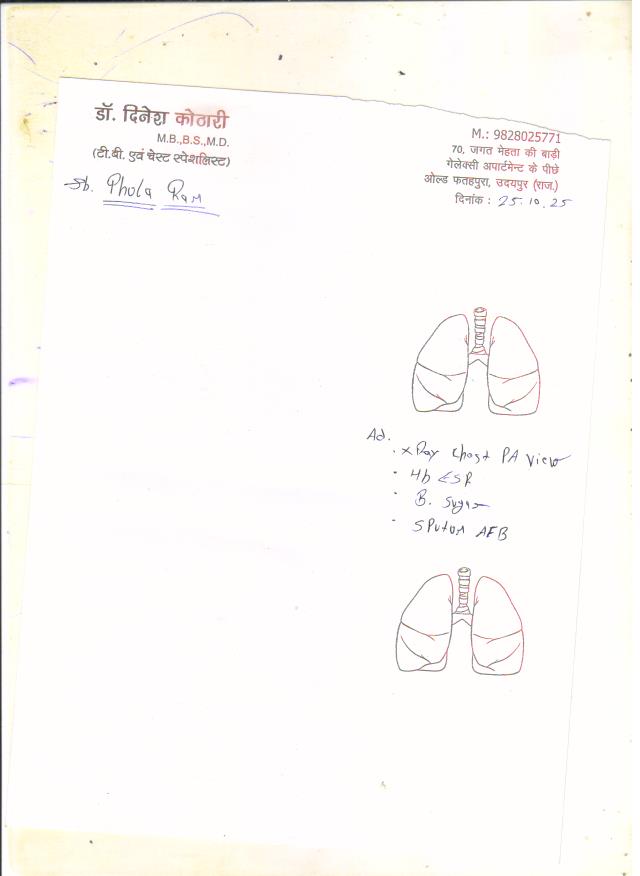 डॉ. दिनेश कोठारी
M.B.,B.S.,M.D.
(टी.बी. एवं चेस्ट स्पेशलिस्ट)
Phula Ram
M.: 9828025771
70, जगत मेहता की बाड़ी
गेलेक्सी अपार्टमेन्ट के पीछे
ओल्ड फतहपुरा, उदयपुर (राज.)
दिनांक : 25.10.25
Ad.
. xRay Chest PA View
- Hb ESR
- B. Sugar
- Sputum AFB